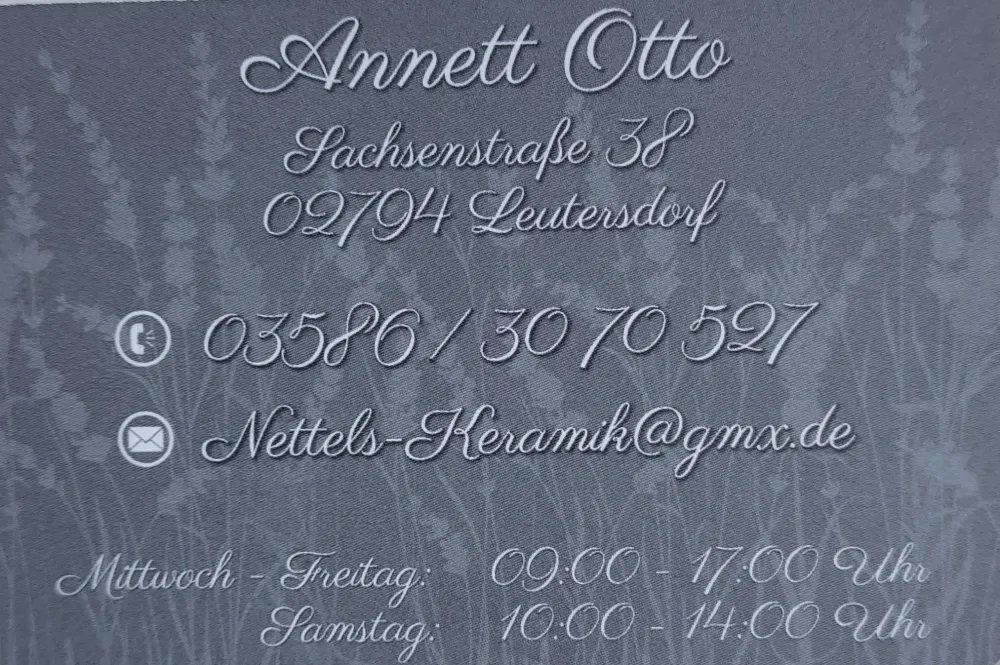 Annett Otto
Sachsenstraße 38
02794 Leutersdorf
03586 / 30 70 527
Nettels-Keramik@gmx.de
Mittwoch - Freitag: 09:00 - 17:00 Uhr
Samstag: 10:00 - 14:00 Uhr